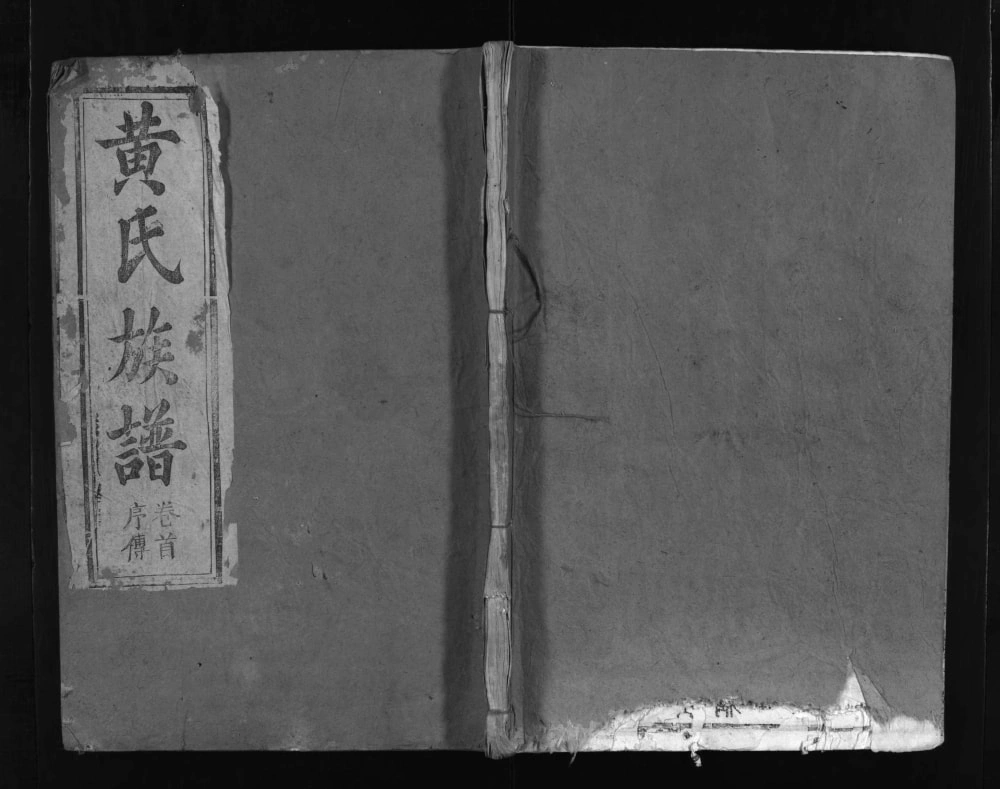 黄氏族譜
卷首
序傳